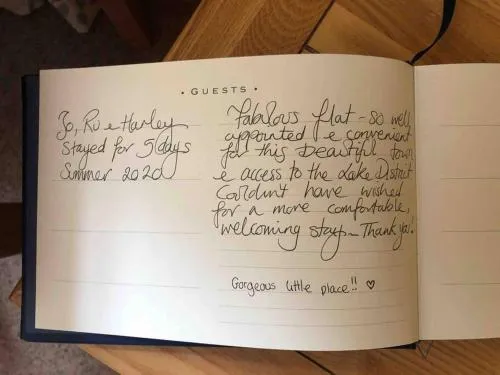 • GUESTS •
Jo, Ru & Harley
Stayed for 5 days
Summer 2020
Fabulous flat - so well
appointed & convenient
for this beautiful town
& access to the Lake District
Couldn't have wished
for a more comfortable,
welcoming stay - Thank you!
Gorgeous little place!! ♡